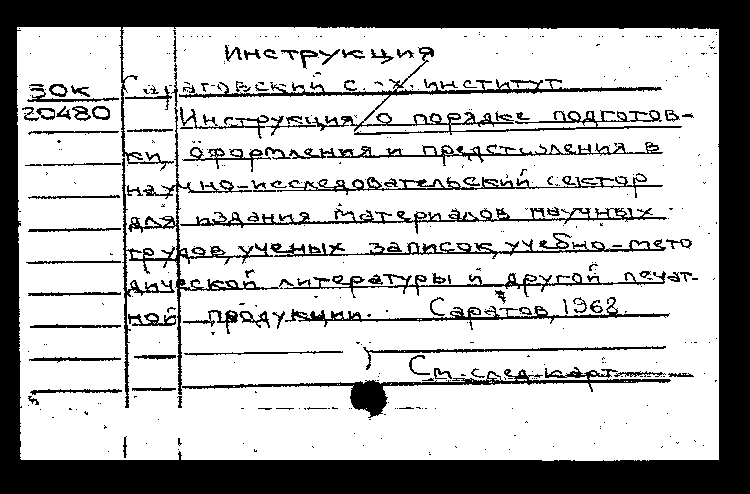 Инструкция
ЗОК Саратовский с.-х. институт.
20480 Инструкция о порядке подготов-
ки, оформления и представления в
научно-исследовательский сектор
для издания материалов научных
трудов, ученых записок, учебно-мето
дической литературы и другой печат-
ной продукции. Саратов, 1968.
См. след. карт.